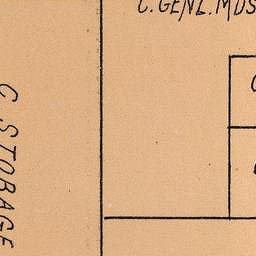 C. GENL. MDS
C. STORAGE